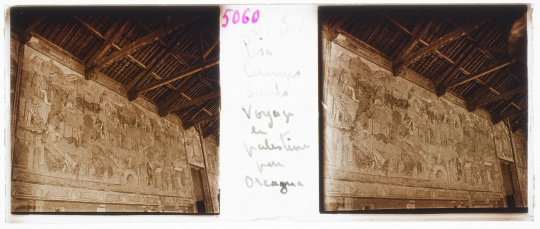 5060
Pisa
Campo
Santo
Voyage
en
palestine
par
Orcagna